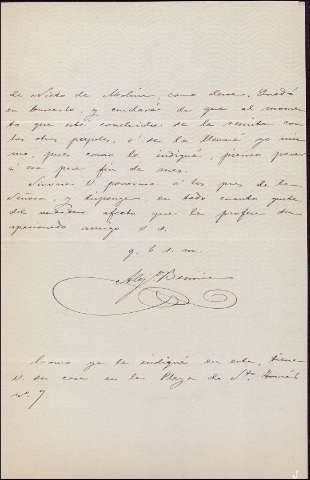 de Nieto de Molina, como dova, Quedó
en hacerlo, y cuidaré de que al momen
to que esté concluido se la remita con
los otros papeles, ó se la llevaré yo mis
mo, pues como le indiqué, pienso pasar
á esa para fin de mes.
Sírvase V. ponerme á los pies de la
Señora, y disponga en todo cuanto guste
del verdadero afecto que le profesa su
apasionado amigo S. S.
q. b. s. m.
Como ya le indiqué en esta, tiene
V. su casa en la Plaza de Sto. Tomás
nº. 7